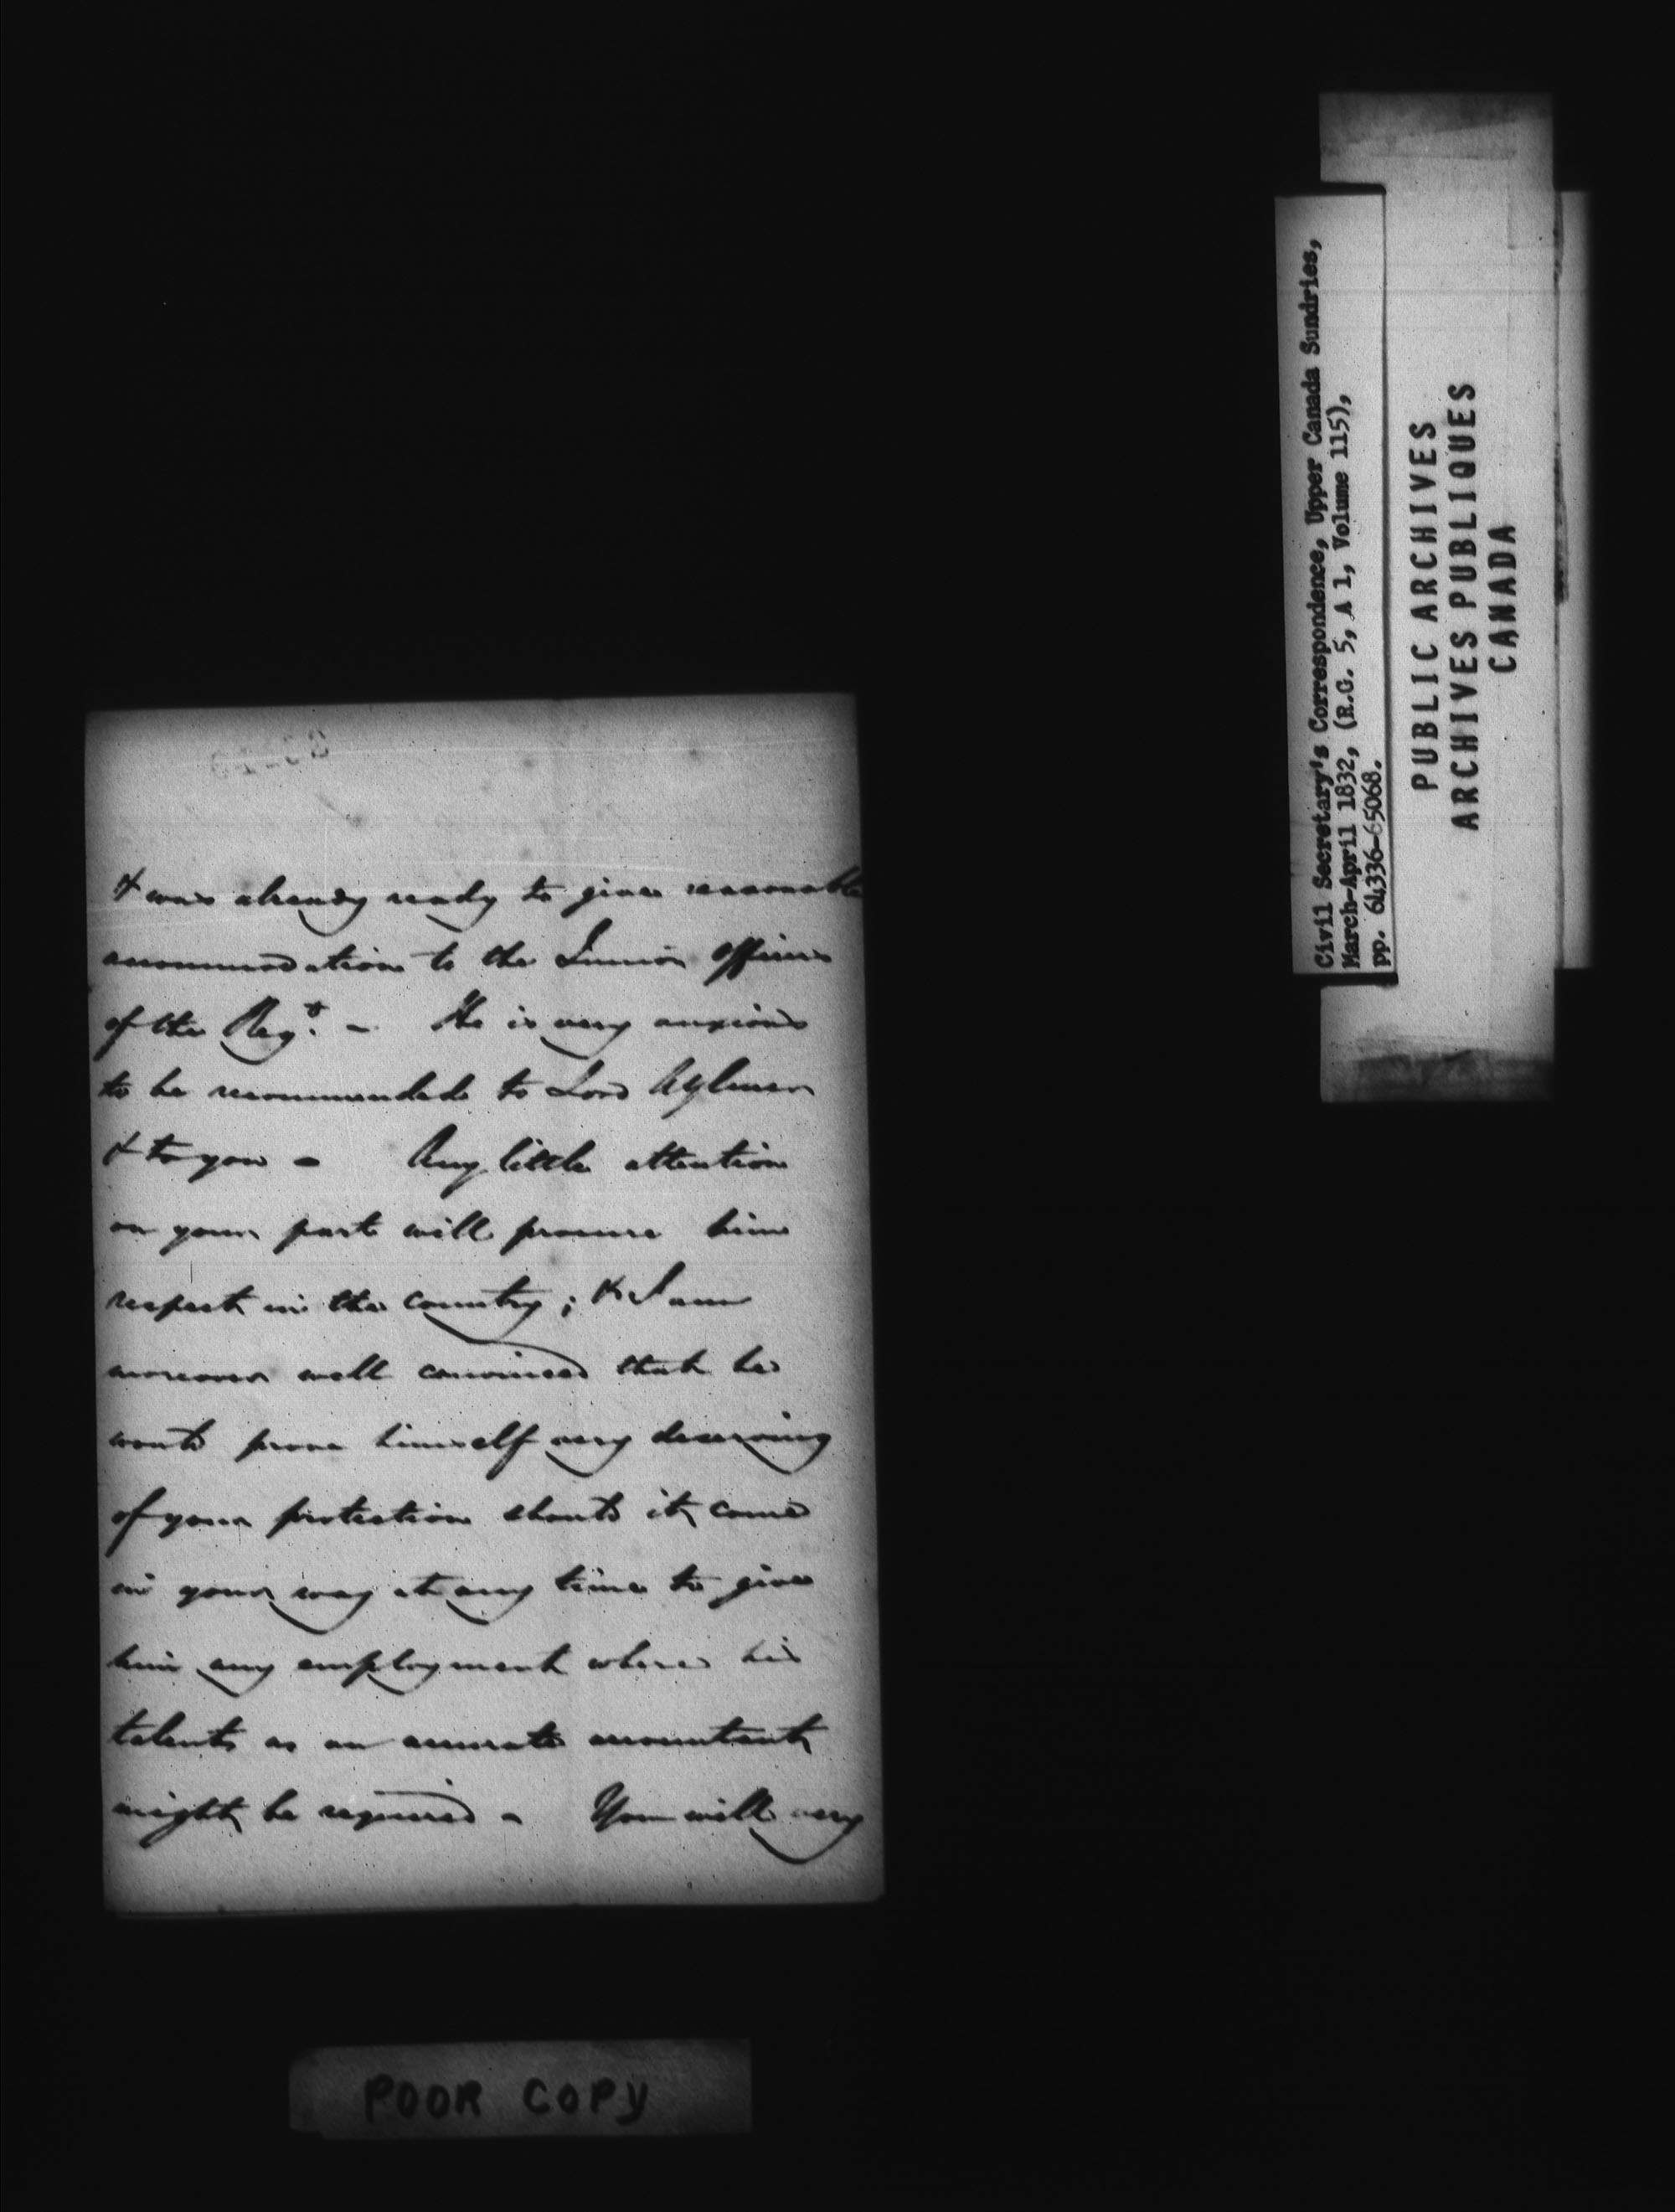 & was already ready to give reasonable
accommodation to the Junior officers
of the Regt. - He is very anxious
to be recommended to Lord Aylmer
& to you - Any little attention
on your part will procure him
respect in the country; & I am
moreover well convinced that he
would prove himself very deserving
of your protection should it come
in your way at any time to give
him any employment where his
talents as an accurate accountant
might be required - You will very
POOR COPY
Civil Secretary's Correspondence, Upper Canada Sundries,
March-April 1832, (R.G. 5, A 1, Volume 115),
pp. 64336-65068.
PUBLIC ARCHIVES
ARCHIVES PUBLIQUES
CANADA